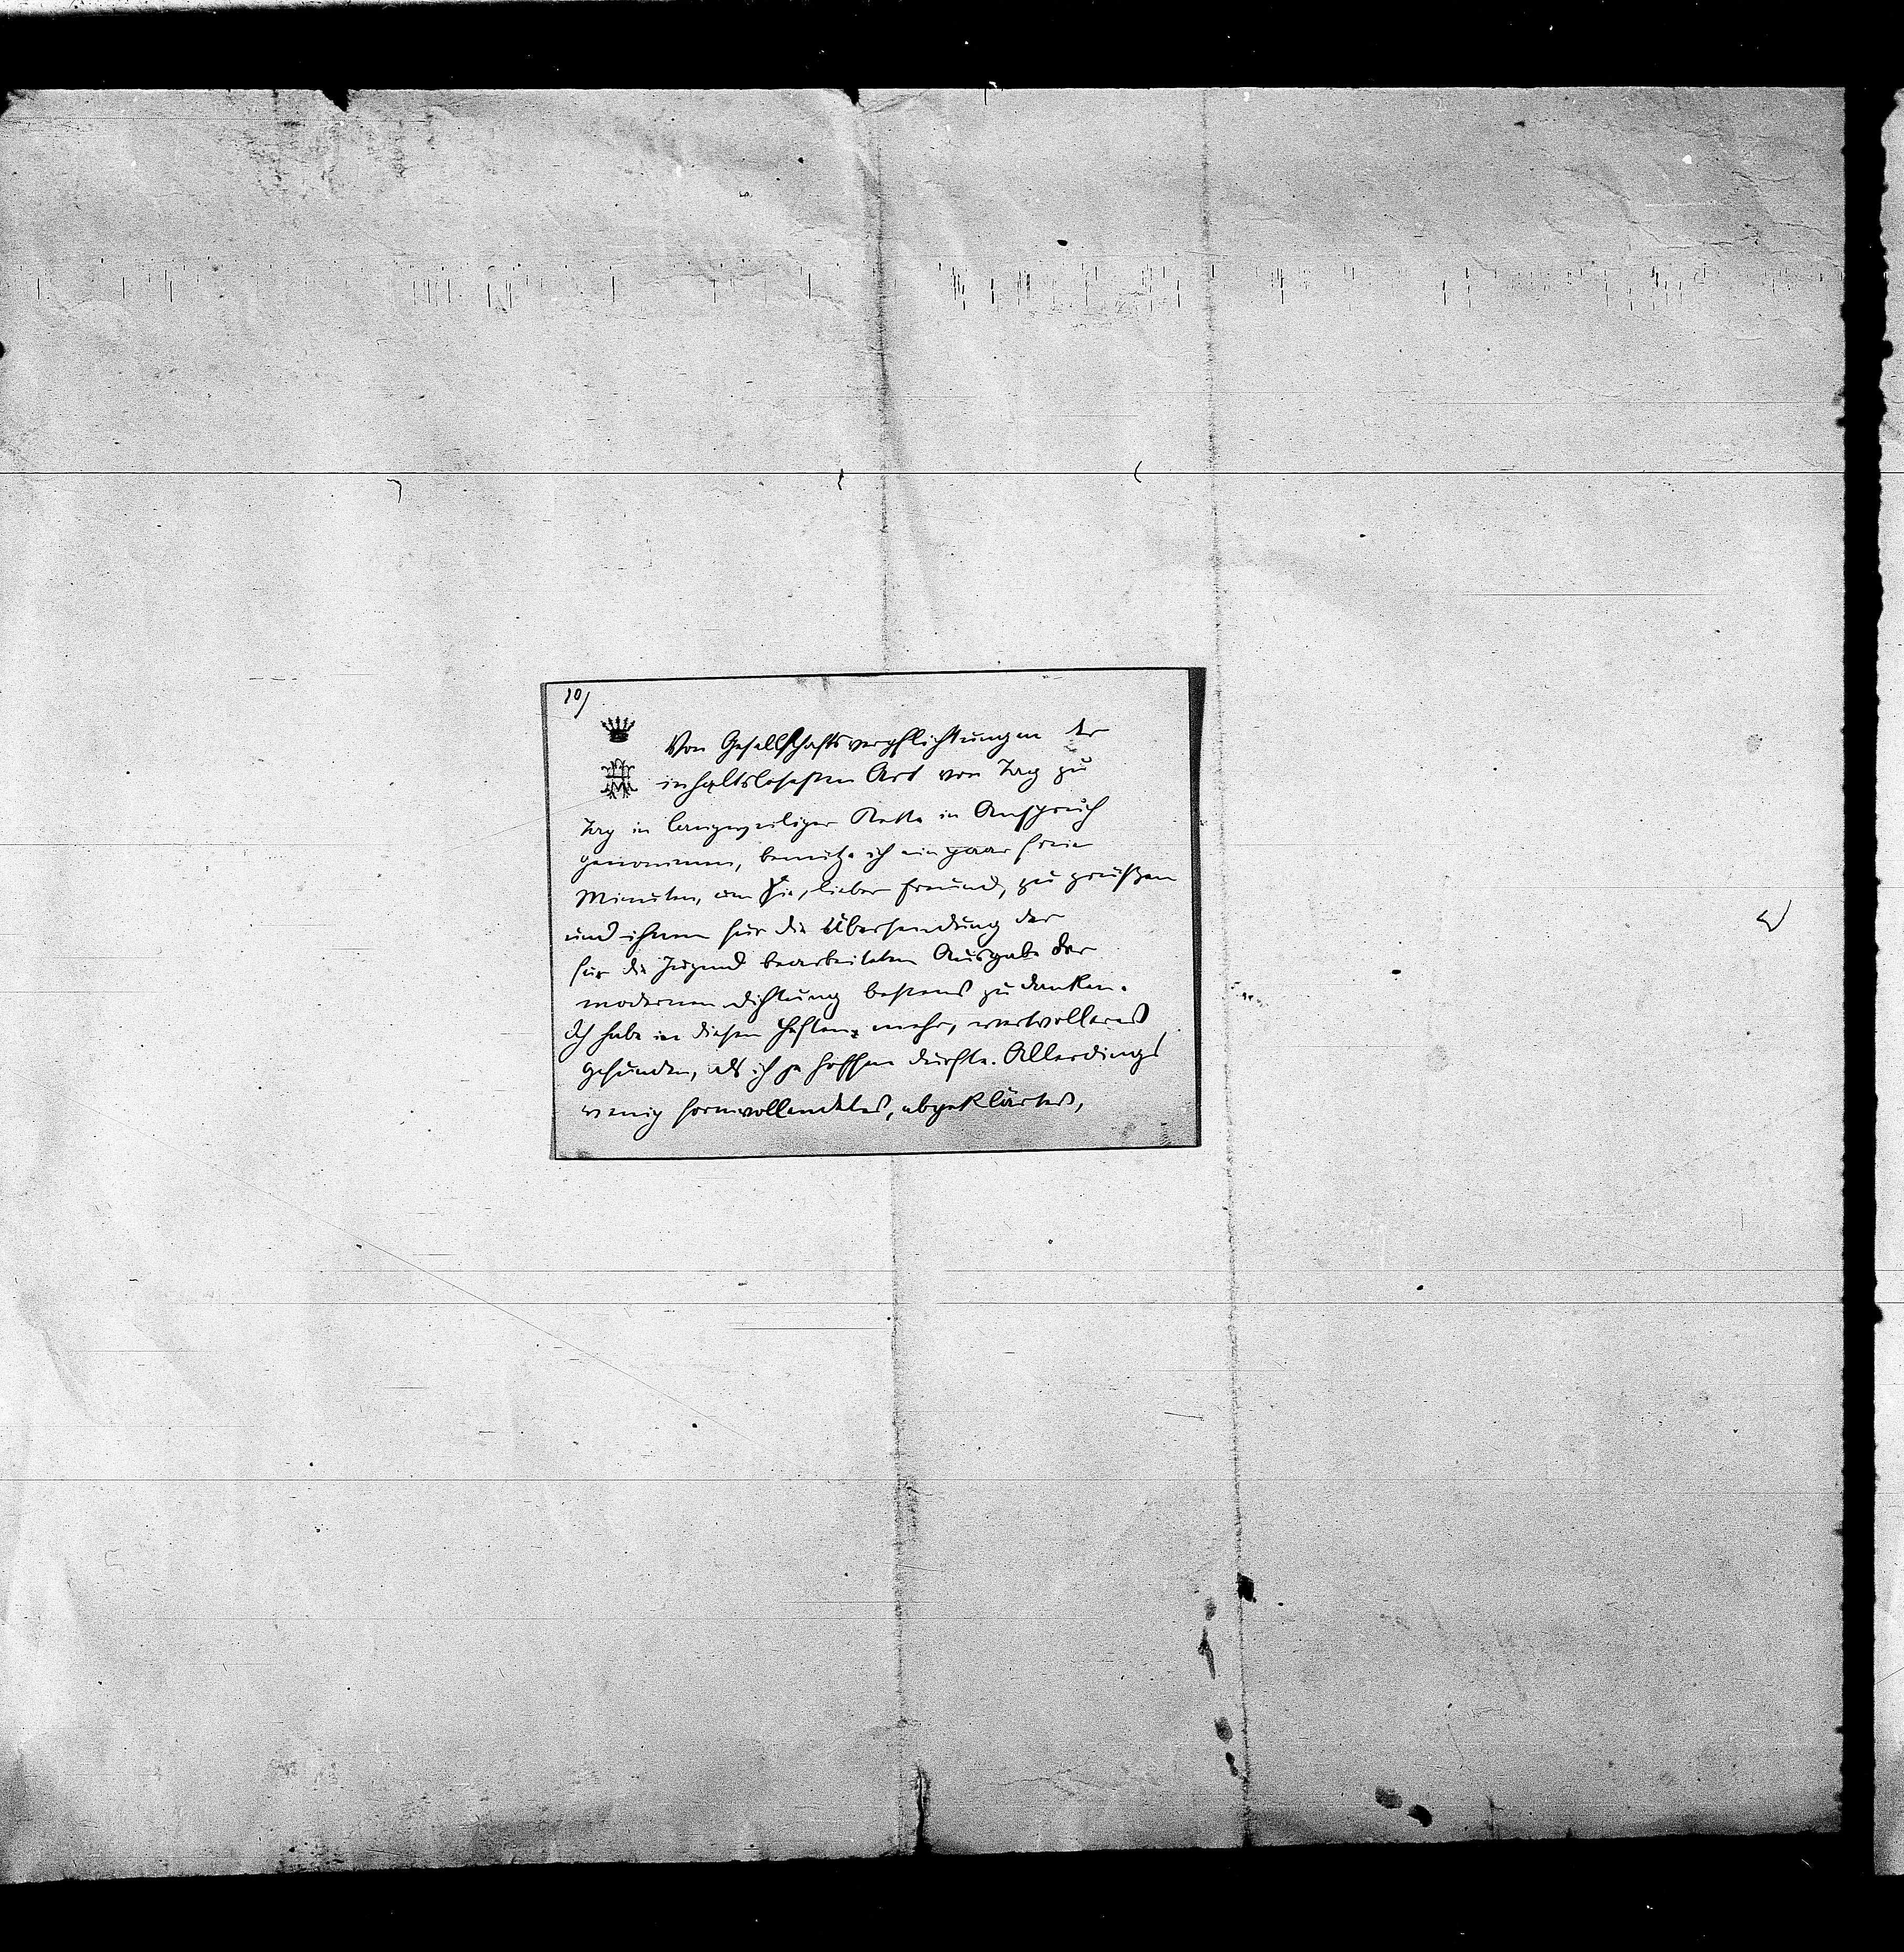 10)
Von Gesellschaftsverpflichtungen der
inhaltslosesten Art von Tag zu
Tag in langweiliger Kette in Anspruch
genommen, benütze ich ein paar freie
Minuten, um Sie, lieber Freund, zu grüßen
und ihnen für die Übersendung der
für die Jugend bearbeiteten Ausgabe der
modernen Dichtung bestens zu danken.
Ich habe in diesen Heften mehr, wertvolleres
gefunden, als ich je hoffen durfte. Allerdings
wenig formvollendetes, abgeklärtes,